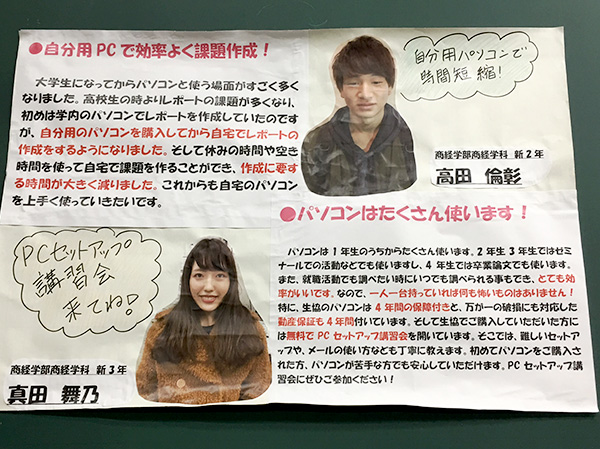 ●自分用PCで効率よく課題作成！
大学生になってからパソコンと使う場面がすごく多く
なりました。高校生の時よりレポートの課題が多くなり、
初めは学内のパソコンでレポートを作成していたのです
が、自分用のパソコンを購入してから自宅でレポートの
作成をするようになりました。そして休みの時間や空き
時間を使って自宅で課題を作ることができ、作成に要す
る時間が大きく減りました。これからも自宅のパソコン
を上手く使っていきたいです。
自分用パソコンで
時間短縮！
商経学部商経学科 新2年
高田 倫彰
PCセットアップ
講習会
来てね！
商経学部商経学科 新3年
真田 舞乃
●パソコンはたくさん使います！
パソコンは1年生のうちからたくさん使います。2年生3年生ではゼミ
ナールでの活動などでも使いますし、4年生では卒業論文でも使います。
また、就職活動でも調べたい時にいつでも調べられる事もでき、とても効
率がいいです。なので、一人一台持っていれば何も怖いものはありません！
特に、生協のパソコンは4年間の保障付きと、万が一の破損にも対応した
動産保証も4年間付いています。そして生協でご購入していただいた方に
は無料でPCセットアップ講習会を開いています。そこでは、難しいセット
アップや、メールの使い方なども丁寧に教えます。初めてパソコンをご購入さ
れた方、パソコンが苦手な方でも安心していただけます。PCセットアップ講
習会にぜひご参加ください！